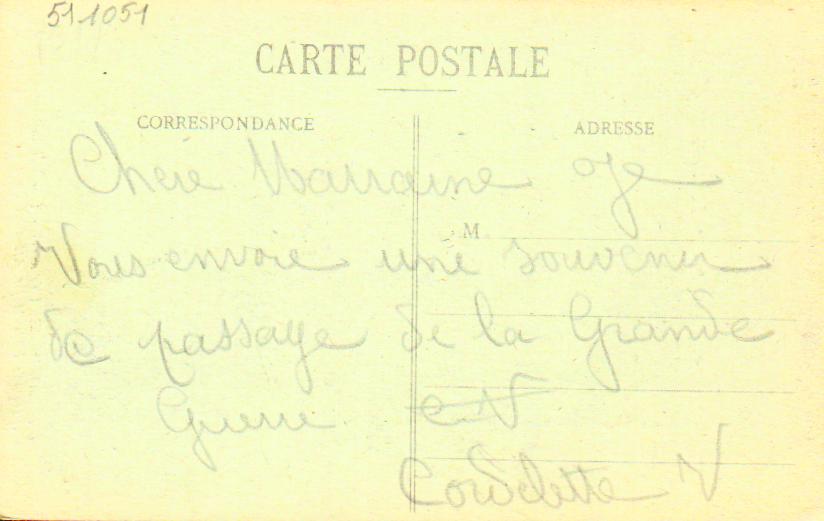 511051
CARTE POSTALE
CORRESPONDANCE
ADRESSE
Chere Marraine Je
M
Vous envoie une souvenir
de passage de la Grande
Guerre
Cordelette V